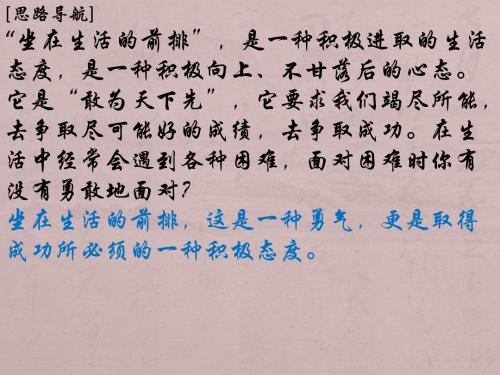 [思路导航]
“坐在生活的前排”，是一种积极进取的生活
态度，是一种积极向上、不甘落后的心态。
它是“敢为天下先”，它要求我们竭尽所能，
去争取尽可能好的成绩，去争取成功。在生
活中经常会遇到各种困难，面对困难时你有
没有勇敢地面对？
坐在生活的前排，这是一种勇气，更是取得
成功所必须的一种积极态度。